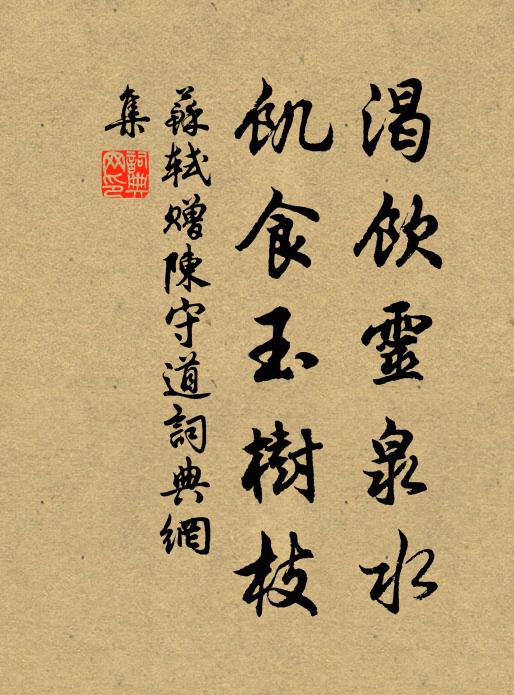 渴飲靈泉水
飢食玉樹枝
蘇軾贈陳守道詞典網
集
詞典
网印